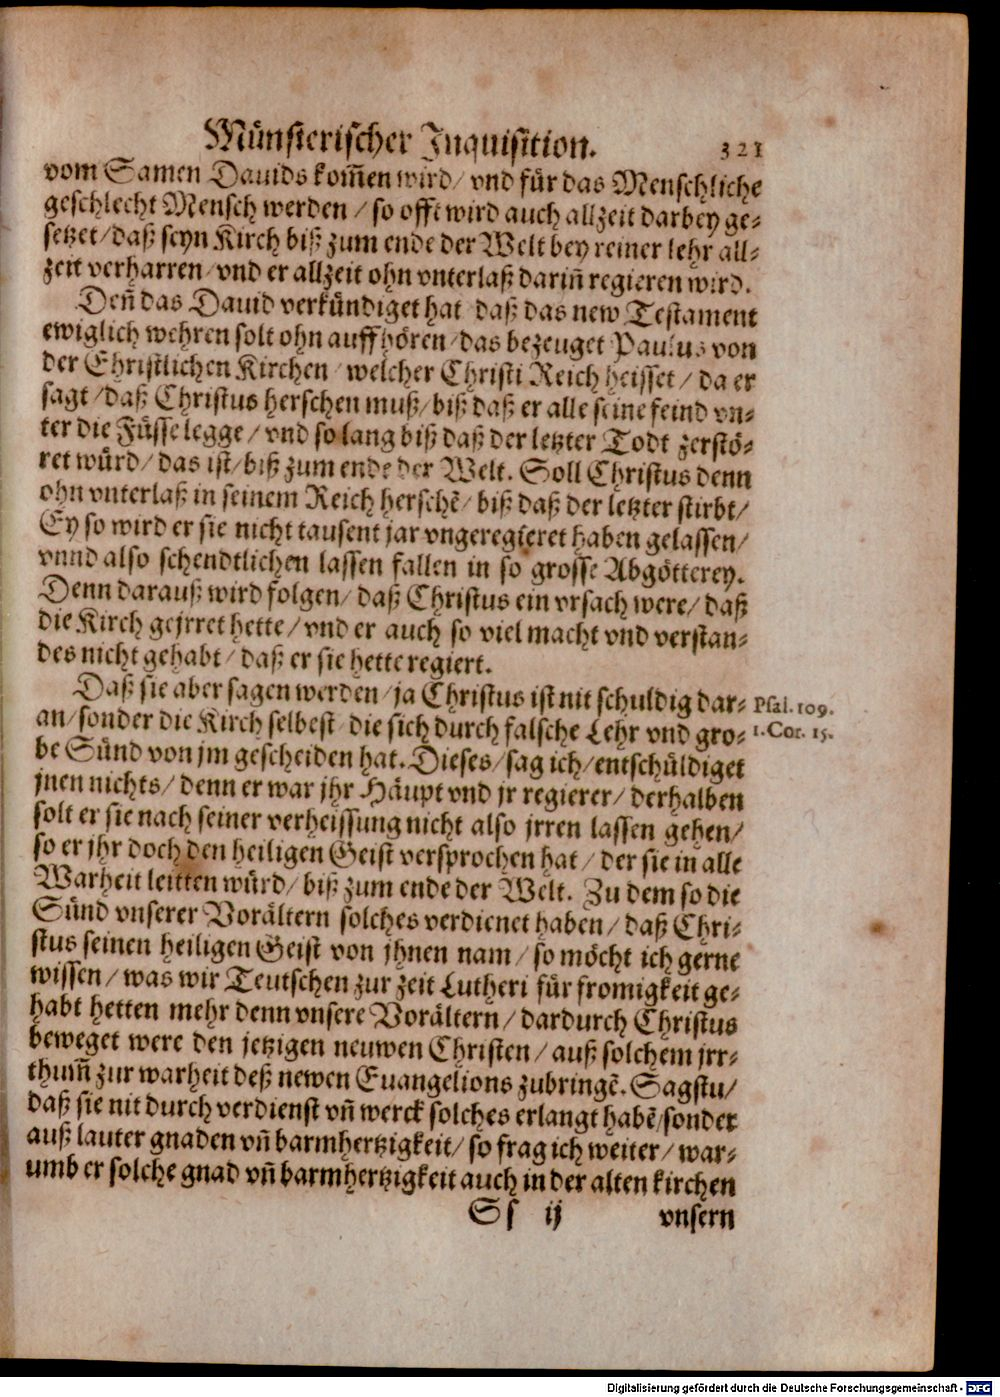 Münsterischer Inquisition. 321
vom Samen Dauids kom̃en wird/ vnd für das Menschliche
geschlecht Mensch werden / so offt wird auch allzeit darbey ge-
setzet/ daß seyn Kirch biß zum ende der Welt bey reiner lehr all-
zeit verharren/ vnd er allzeit ohn vnterlaß dariñ regieren wird.
Deñ das Dauid verkündiget hat daß das new Testament
ewiglich wehren solt ohn auffhören/ das bezeuget Paulus von
der Christlichen Kirchen / welcher Christi Reich heisset / da er
sagt / daß Christus herschen muß/ biß daß er alle seine feind vn-
ter die Füsse legge / vnd so lang biß daß der letzter Todt zerstö-
ret würd/ das ist/ biß zum ende der Welt. Soll Christus denn
ohn vnterlaß in seinem Reich herschẽ/ biß daß der letzter stirbt/
Ey so wird er sie nicht tausent jar vngeregieret haben gelassen/
vnnd also schendtlichen lassen fallen in so grosse Abgötterey.
Denn darauß wird folgen/ daß Christus ein vrsach were/ daß
die Kirch gejrret hette/ vnd er auch so viel macht vnd verstan-
des nicht gehabt / daß er sie hette regiert.
Daß sie aber sagen werden / ja Christus ist nit schuldig dar-
an/ sonder die Kirch selbest / die sich durch falsche Lehr vnd gro-
be Sünd von jm gescheiden hat. Dieses/ sag ich/ entschüldiget
jnen nichts/ denn er war jhr Häupt vnd jr regierer/ derhalben
solt er sie nach seiner verheissung nicht also jrren lassen gehen/
so er jhr doch den heiligen Geist versprochen hat / der sie in alle
Warheit leitten würd/ biß zum ende der Welt. Zu dem so die
Sünd vnserer Vorältern solches verdienet haben / daß Chri-
stus seinen heiligen Geist von jhnen nam / so möcht ich gerne
wissen / was wir Teutschen zur zeit Lutheri für fromigkeit ge-
habt hetten mehr denn vnsere Vorältern / dardurch Christus
beweget were den jetzigen neuwen Christen / auß solchem jrr-
thum̃ zur warheit deß newen Euangelions zubringẽ. Sagstu/
daß sie nit durch verdienst vñ werck solches erlangt habẽ/ sonder
auß lauter gnaden vñ barmhertzigkeit/ so frag ich weiter/ war-
umb er solche gnad vñ barmhertzigkeit auch in der alten kirchen
Ss ij vnsern
Psal. 109.
1. Cor. 15.
Digitalisierung gefördert durch die Deutsche Forschungsgemeinschaft - DFG